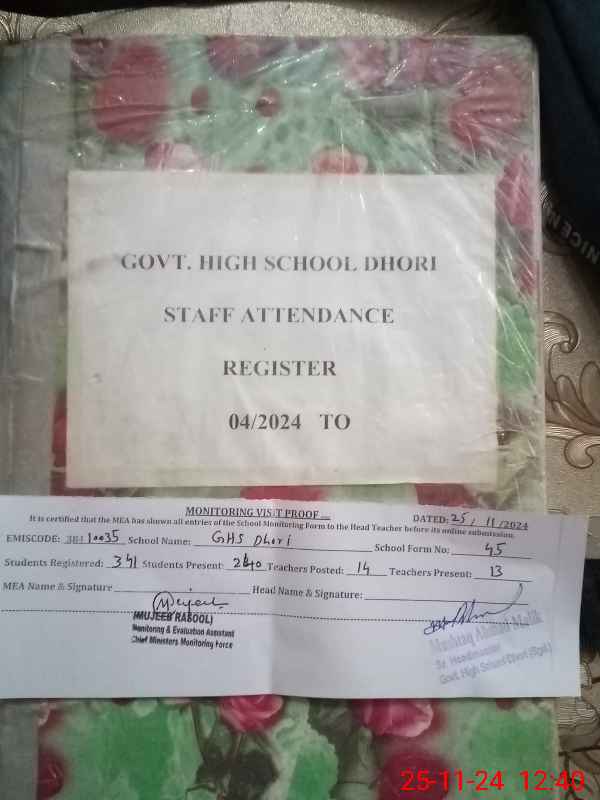 GOVT. HIGH SCHOOL DHORI
STAFF ATTENDANCE
REGISTER
04/2024 TO
MONITORING VISIT PROOF
DATED: 25, 11/2024
It is certified that the MEA has shown all entries of the School Monitoring Form to the Head Teacher before its online submission.
EMISCODE: 38410035 School Name: GHS Dhori School Form No: 45
Students Registered: 341 Students Present: 240 Teachers Posted: 14 Teachers Present: 13
MEA Name & Signature Head Name & Signature:
(MUJEEB RASOOL)
Monitoring & Evaluation Assistant
Chief Ministers Monitoring Force
Mushtaq Ahmad Malik
Sr. Headmaster
Govt. High School Dhori (Sgd.)
NICE
25-11-24 12:40